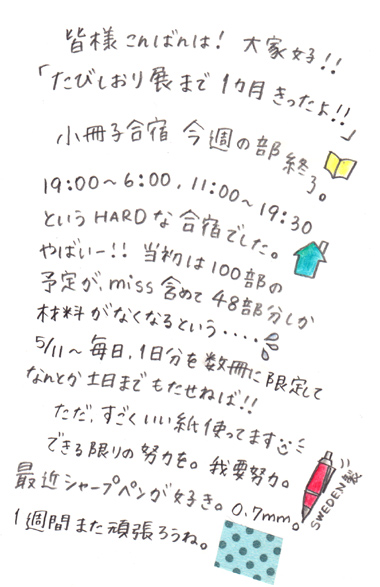 皆様こんばんは! 大家好!!
「たびしおり展まで1カ月きったよ!!」
小冊子合宿 今週の部終了。
19:00～6:00, 11:00～19:30
というHARDな合宿でした。
やばいー!! 当初は100部の
予定が、miss含めて48部分しか
材料がなくなるという・・・・
5/11～毎日、1日分を数冊に限定して
なんとか土日までもたせねば!!
ただ、すごくいい紙使ってます
できる限りの努力を。我要努力。
最近シャープペンが好き。0.7mm。
SWEDEN製
1週間また頑張ろうね。